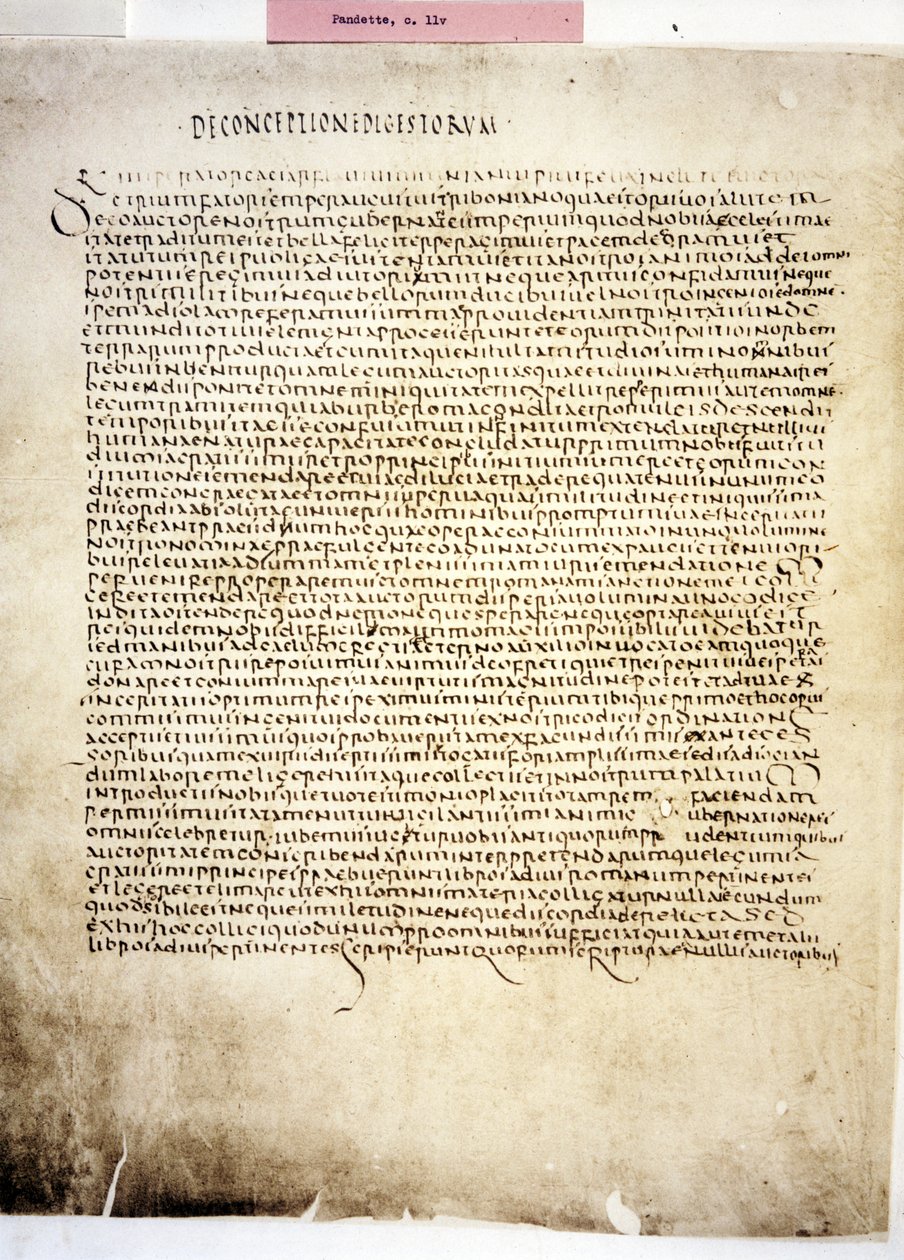 DE CONCEPTIONE DIGESTORUM
et triumfator semper augustus triboniano quaestori suo salutem
deo auctore nostrum gubernante imperium quod nobis a celesti mae
state traditum est et bella feliciter peragimus et pacem decoramus et
statum rei publicae sustentamus et ita nostros animos ad dei omni
potentis erigimus adiutorium ut neque armis confidamus neque
nostris militibus neque bellorum ducibus uel nostro ingenio sed omne
spem ad solam referamus summae prouidentiam trinitatis unde
et mundi totius elementa processerunt et eorum dispositio in orbem
terrarum producta est cum itaque nihil tam studiosum in omnibus
rebus inuenitur quam legum auctoritas quae et diuinas et humanas res
bene disponit et omnem iniquitatem expellit repperimus autem omne
legum tramitem qui ab urbe roma condita et romuleis descendit
temporibus ita esse confusum ut in infinitum extendatur et nullius
humanae naturae capacitate concludatur primum nobis fuit stu
dium a sacratissimis retro principibus initium sumere et eorum con
stitutiones emendare et uiae dilucidae tradere quatenus in unum co
dicem congregatae et omni superuacua similitudine et iniquissima
discordia absolutae uniuersis hominibus promptum suae sinceritatis
praebeant praesidium hocque opere consummato in uno uolumine
nostro nomine praefulgente coadunato cum ex paucis et tenuiori
bus releuati ad summam et plenissimam iuris emendatione
peruenire properaremus et omnem romanam sanctionem et colli
gere et emendare et tot auctorum dispersa uolumina uno codice
indita ostendere quod nemo neque sperare neque optare ausus est
res quidem nobis difficillima immo magis impossibilis uidebatur
sed manibus ad caelum erectis et aeterno auxilio inuocato eam quoque
curam nostris reposuimus animis deo freti qui et res penitus desperatas
donare et consummare suae uirtutis magnitudine potest et ad tuae
sinceritatis optimum respeximus ministerium tibique primo et hoc opus
commisimus ingenii tui documentis ex nostri codicis ordinatione
acceptis et iussimus quos probaueris tam ex facundissimis anteces
soribus quam ex uiris disertissimis togatis fori amplissimae sedis ad socian
dum laborem eligere his itaque collectis et in nostrum palatium
introductis nobisque tuo testimonio placitis totam rem faciendam
permisimus ita tamen ut tui uigilantissimi animi gubernatione res
omnis celebretur iubemus igitur uobis antiquorum prudentium quibus
auctoritatem conscribendarum interpretendarumque legum sa
cratissimi principes praebuerunt libros ad ius romanum pertinentes
et legere et elimare ut ex his omnis materia colligatur nulla secundum
quod possibile est neque similitudine neque discordia derelicta sed
ex his hoc colligi quod unum pro omnibus sufficiat quia autem et alii
libros ad ius pertinentes scripserunt quorum scripturae nullis auctoribus
Pandette, c. 11v